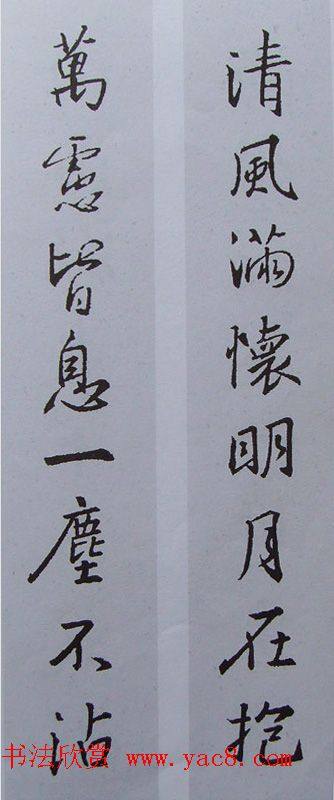 清風滿懷明月在抱
萬慮皆息一塵不沾
书法欣赏 www.yac8.com